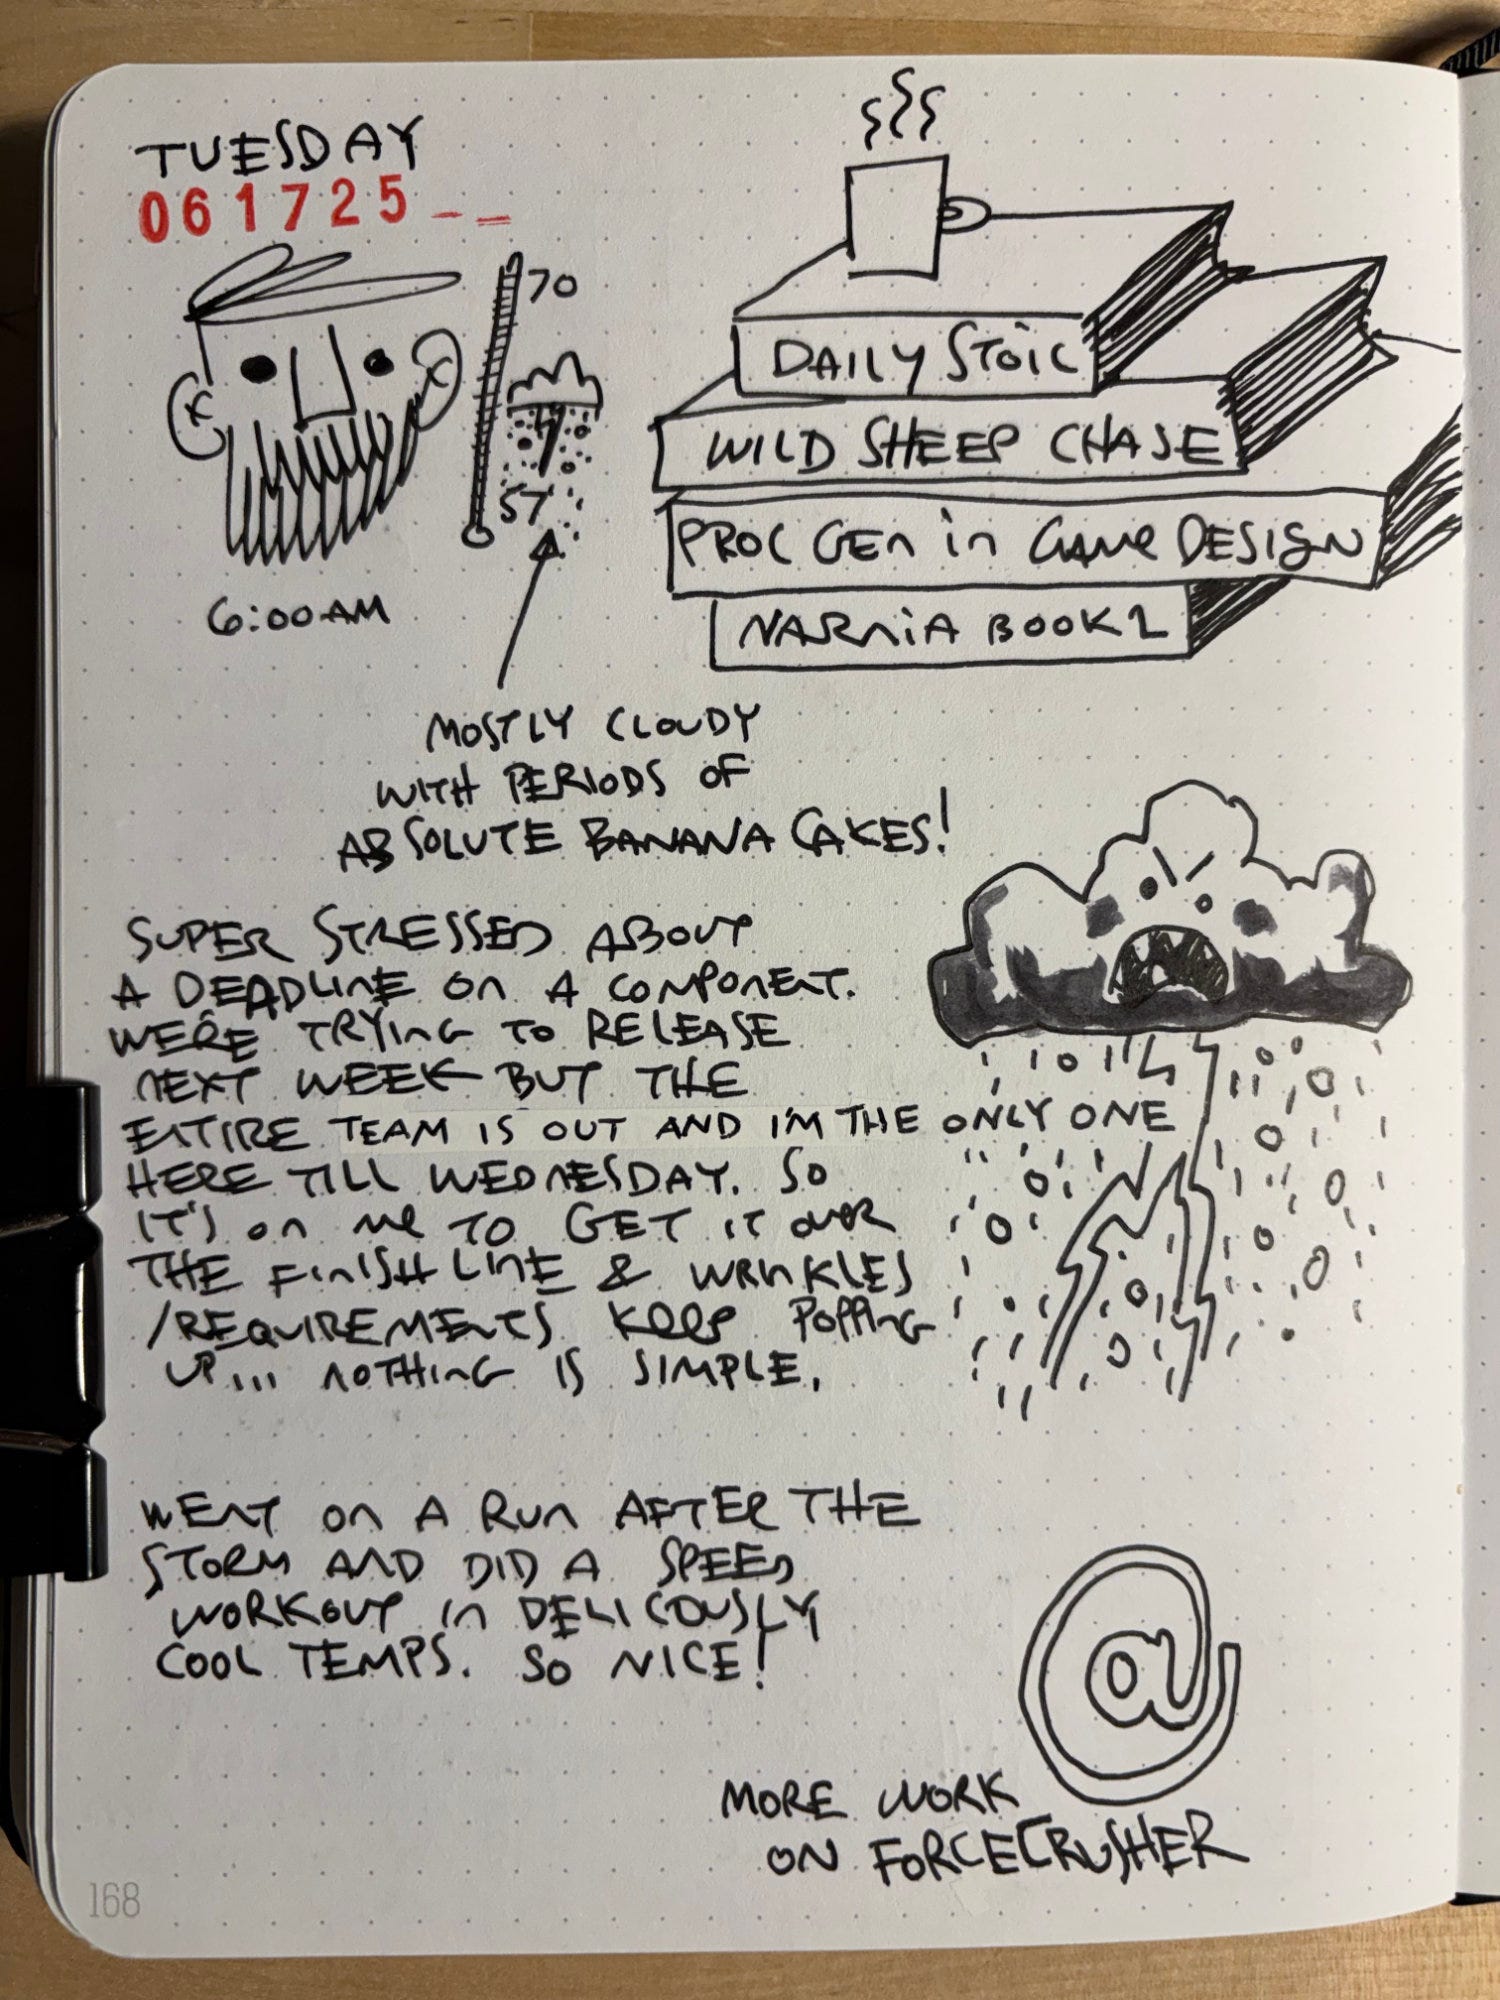 TUESDAY
061725--
70
57
6:00AM
DAILY STOIC
WILD SHEEP CHASE
PROC GEN in GAME DESIGN
NARNIA BOOK 1
MOSTLY CLOUDY
WITH PERIODS OF
ABSOLUTE BANANA CAKES!
SUPER STRESSED ABOUT
A DEADLINE ON A COMPONENT.
WE'RE TRYING TO RELEASE
NEXT WEEK BUT THE
ENTIRE TEAM IS OUT AND I'M THE ONLY ONE
HERE TILL WEDNESDAY. SO
IT'S ON ME TO GET IT OVER
THE FINISH LINE & WRINKLES
/REQUIREMENTS KEEP POPPING
UP... NOTHING IS SIMPLE.
WENT ON A RUN AFTER THE
STORM AND DID A SPEED
WORKOUT IN DELICOUSLY
COOL TEMPS. SO NICE!
@
MORE WORK
ON FORCECRUSHER
168